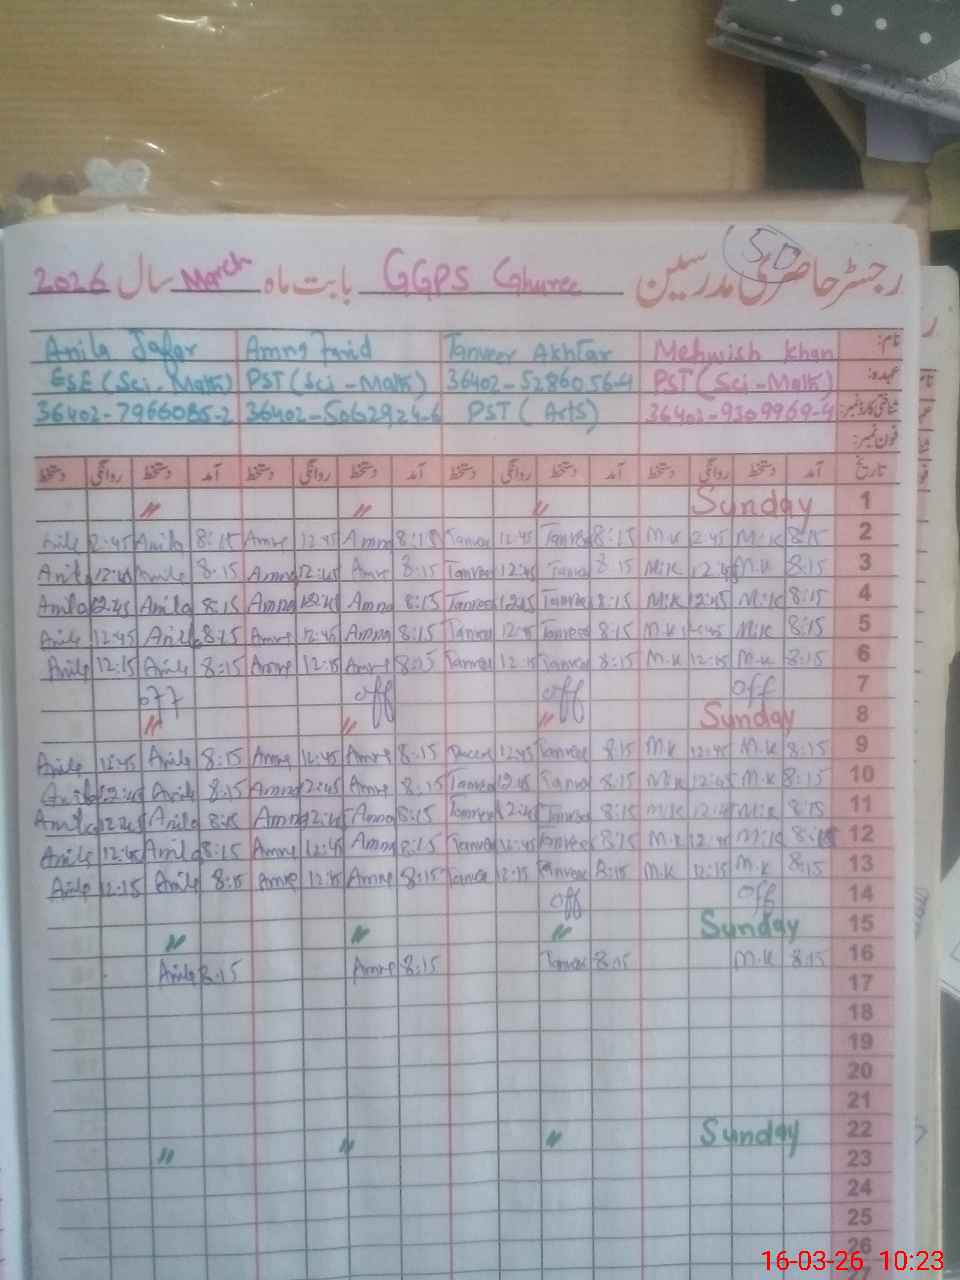 50
رجسٹر حاضری مدرسین GGPS Ghuree بابت ماہ March سال 2026
نام: Mehwish Khan Tanveer Akhtar Amna Farid Anila Jafar
عہدہ: PST (Sci-Math) 36402-5286056-4 PST (Sci-Math) ESE (Sci-Math)
شناختی کارڈ نمبر: 36402-9309969-4 PST (Arts) 36402-5062924-6 36402-7966085-2
فون نمبر:
تاریخ آمد دستخط روانگی دستخط آمد دستخط روانگی دستخط آمد دستخط روانگی دستخط آمد دستخط روانگی دستخط
1 Sunday 〃 〃 〃
2 8:15 M.K 2:45 M.K 8:15 Tanveer 12:45 Tanveer 8:15 Amna 12:45 Amna 8:15 Anila 2:45 Anila
3 8:15 M.K 12:45 M.K 8:15 Tanveer 12:45 Tanveer 8:15 Amna 12:45 Amna 8:15 Anila 12:45 Anila
4 8:15 M.K 12:45 M.K 8:15 Tanveer 12:45 Tanveer 8:15 Amna 12:45 Amna 8:15 Anila 12:45 Anila
5 8:15 M.K 12:45 M.K 8:15 Tanveer 12:45 Tanveer 8:15 Amna 12:45 Amna 8:15 Anila 12:45 Anila
6 8:15 M.K 12:15 M.K 8:15 Tanveer 12:15 Tanveer 8:15 Amna 12:15 Amna 8:15 Anila 12:15 Anila
7 off off off off
8 Sunday 〃 〃 〃
9 8:15 M.K 12:45 M.K 8:15 Tanveer 12:45 8:15 Amna 12:45 Amna 8:15 Anila 12:45 Anila
10 8:15 M.K 12:45 M.K 8:15 Tanveer 12:45 Tanveer 8:15 Amna 2:45 Amna 8:15 Anila 12:45 Anila
11 8:15 M.K 12:45 M.K 8:15 Tanveer 12:45 Tanveer 8:15 Amna 2:45 Amna 8:15 Anila 12:45 Anila
12 8:15 M.K 12:45 M.K 8:15 Tanveer 12:45 Tanveer 8:15 Amna 12:45 Amna 8:15 Anila 12:45 Anila
13 8:15 M.K 12:15 M.K 8:15 Tanveer 12:15 Tanveer 8:15 Amna 12:15 Amna 8:15 Anila 12:15 Anila
14 off off
15 Sunday 〃 〃 〃
16 8:15 M.K 8:15 Tanveer 8:15 Amna 8:15 Anila
17
18
19
20
21
22 Sunday 〃 〃 〃
23
24
25
26
16-03-26 10:23